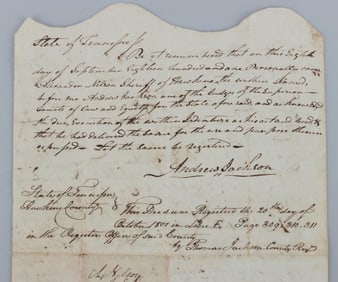 State of Tennessee
Be it remembered that on this Eighth
day of September Eighteen hundred and one Personally came
Nelson Sheriff of Hawkins the within Named,
before me Andrew Jackson one of the Judges of the Superior
Courts of Law and Equity for the State aforesaid and acknowledged
the due Execution of the within Indenture
that he had delivered the same for the use and purpose therein
expressed Let the same be registered
Andrew Jackson
State of Tennessee
Hawkins County This Deed was Registered the 20th day of
October 1801 in Page 309, 310, 311
in the Registers Office of said County
by Thomas Jackson County Regr